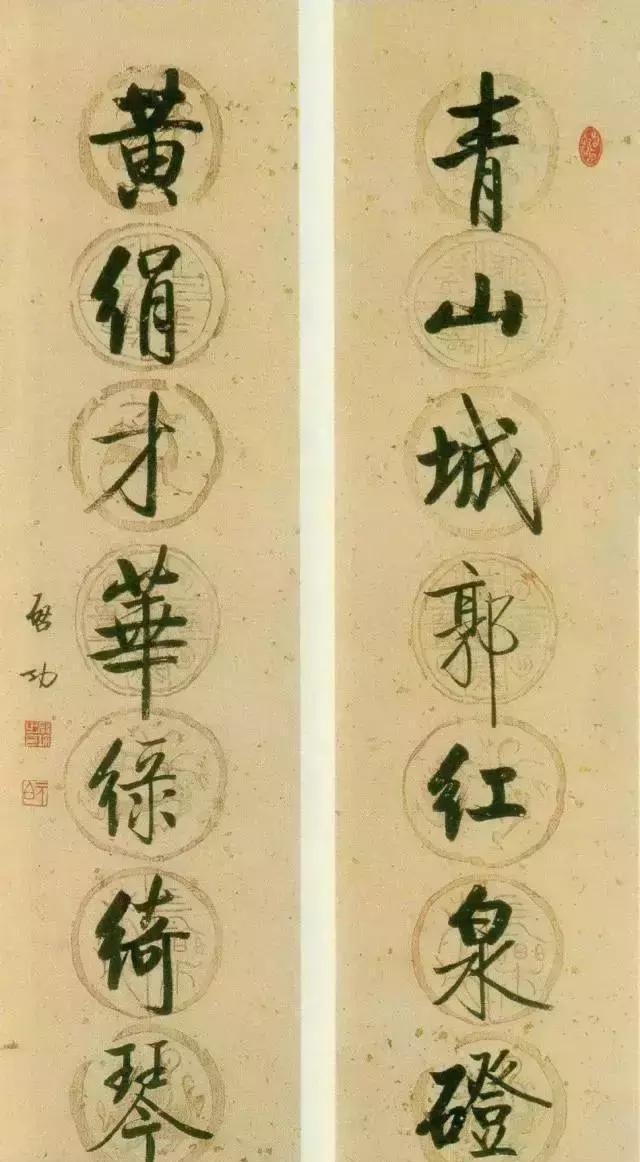 青山城郭红泉磴
黄绢才華绿綺琴
啟功